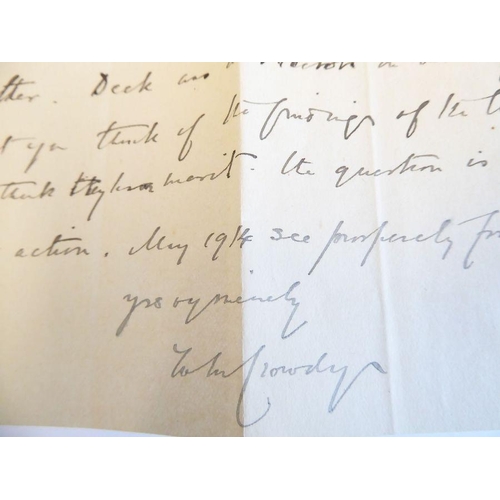 ther. Deck as a
t you think of the findings of the
think they have merit. The question is
action. May 1914 see prosperity
yrs v sincerely
Crowdy